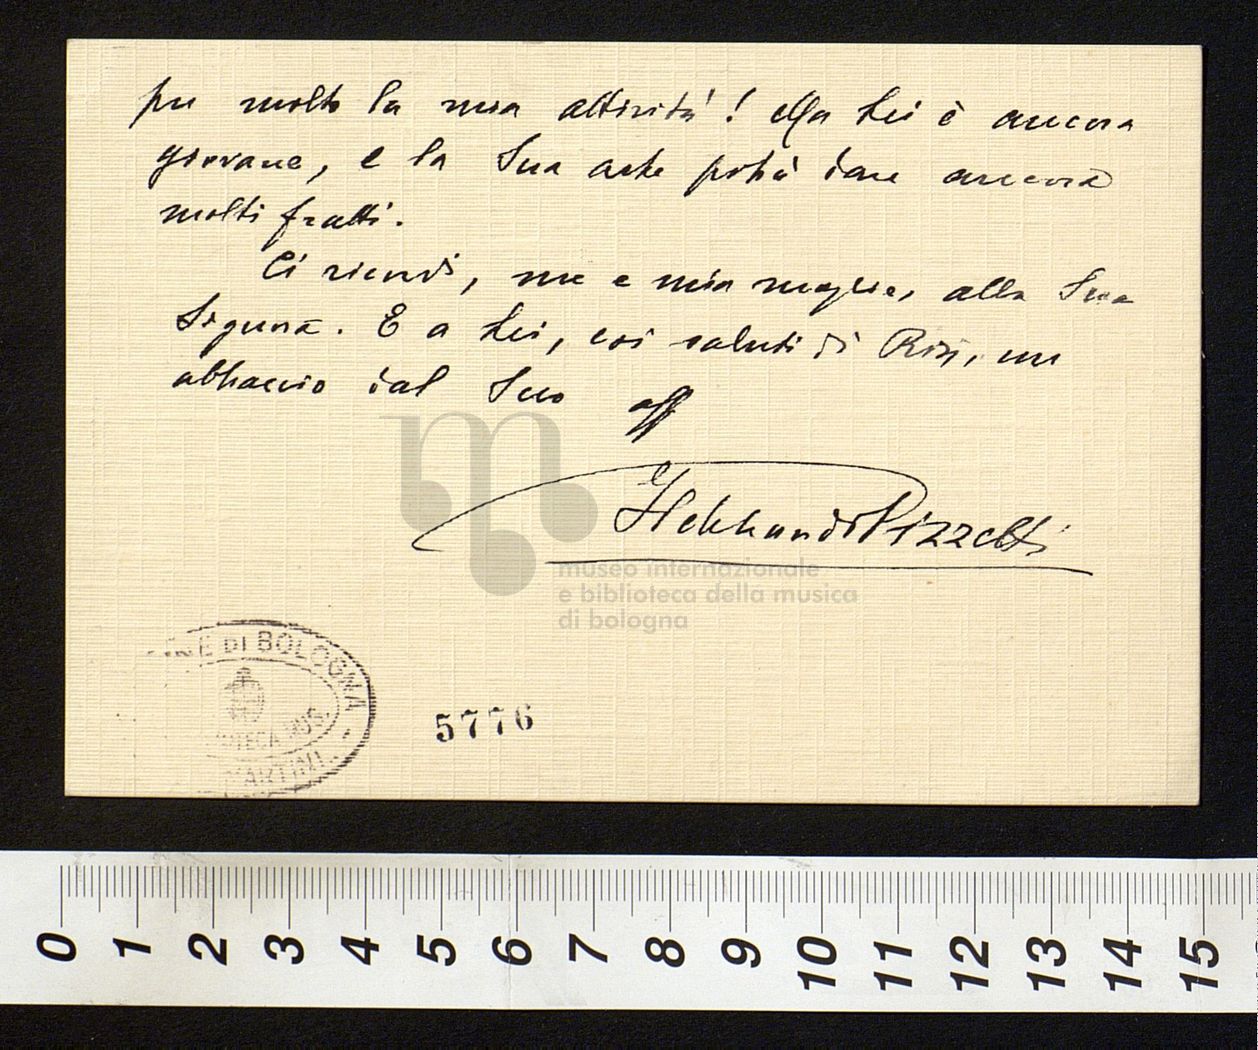 per molto la mia attività! Ma Lei è ancora
giovane, e la Sua arte potrà dare ancora
molti frutti.
Ci ricordi, me e mia moglie, alla Sua
Signora. E a Lei, coi saluti di Rirì, un
abbraccio dal Suo aff
Ildebrando Pizzetti
museo internazionale
e biblioteca della musica
di bologna
NE DI BOLOGNA
OTECA MUS.
MARTINI
5776
0 1 2 3 4 5 6 7 8 9 10 11 12 13 14 15